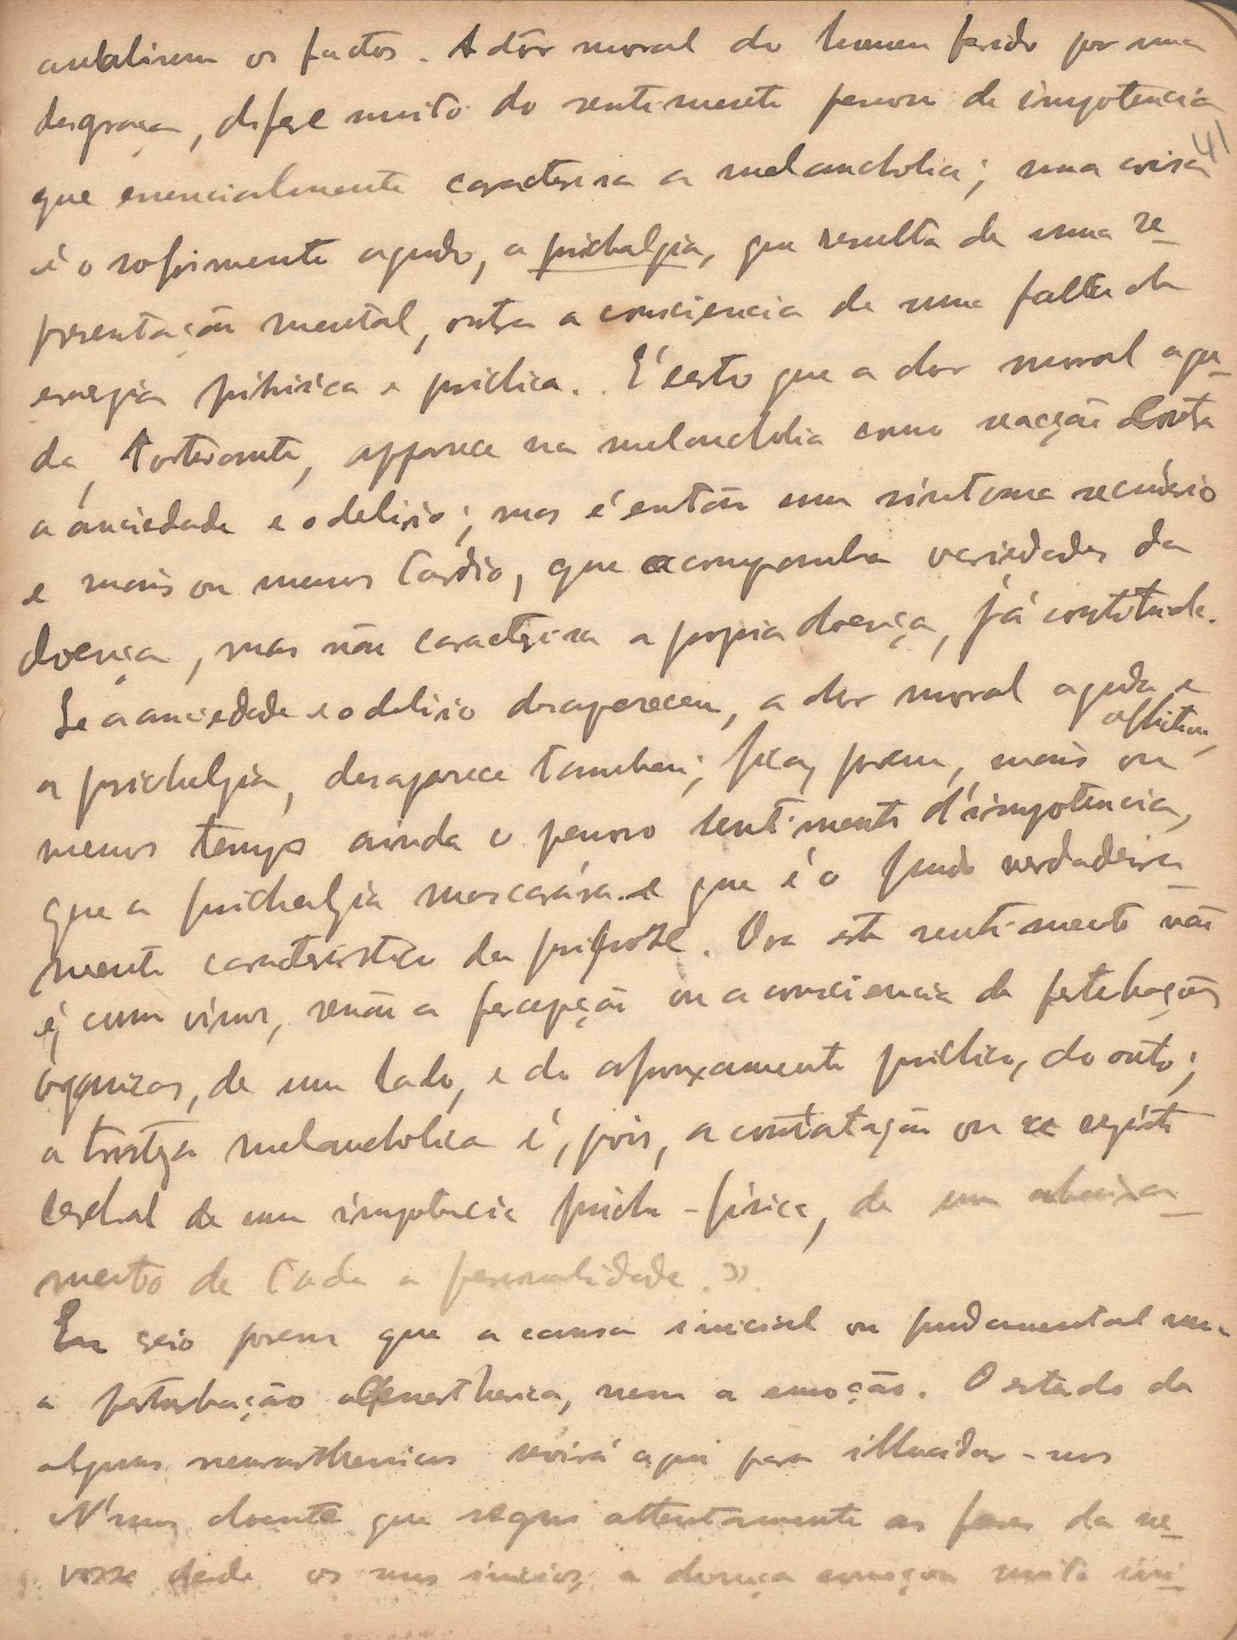 analisem os factos. A dôr moral do homem ferido por uma
desgraça, difere muito do sentimento penoso de impotencia
41
que essencialmente caracterisa a melancholia; uma coisa
é o sofrimento agudo, a psichalgia, que resulta de uma re-
presentação mental, outra a consciencia de uma falta de
energia phisica e psichica. É certo que a dor moral agu-
da, torturante, apparece na melancholia como reacção contra
a anciedade e o delirio; mas é então um síntoma secundário
e mais ou menos tardio, que acompanha variedades da
doença, mas não caracterisa a propria doença, já constituida.
Se a anciedade e o delirio desaparecem, a dor moral aguda e
aflictiva,
a psichalgia, desaparece tambem; fica, porem, mais ou
menos tempo ainda o penoso sentimento d'impotencia,
que a psichalgia mascarára e que é o fundo verdadeira-
mente caracteristico da psichose. Ora este sentimento não
é, como vimos, senão a percepção ou a consciencia de perturbações
organicas, de um lado, e do afrouxamento psichico, do outro;
a tristeza melancholica é, pois, a constatação ou registo
cerebral de uma impotencia psicho-fisica, de um abaixa-
mento de toda a personalidade.»
Eu creio porem que a causa inicial ou fundamental nem
a perturbação cenesthesica, nem a emoção. O estado de
alguns neurasthenicos servirá aqui para illucidar-nos
N'um doente que segui attentamente as fases da ne-
vrose desde os seus inicios, a doença começou muito